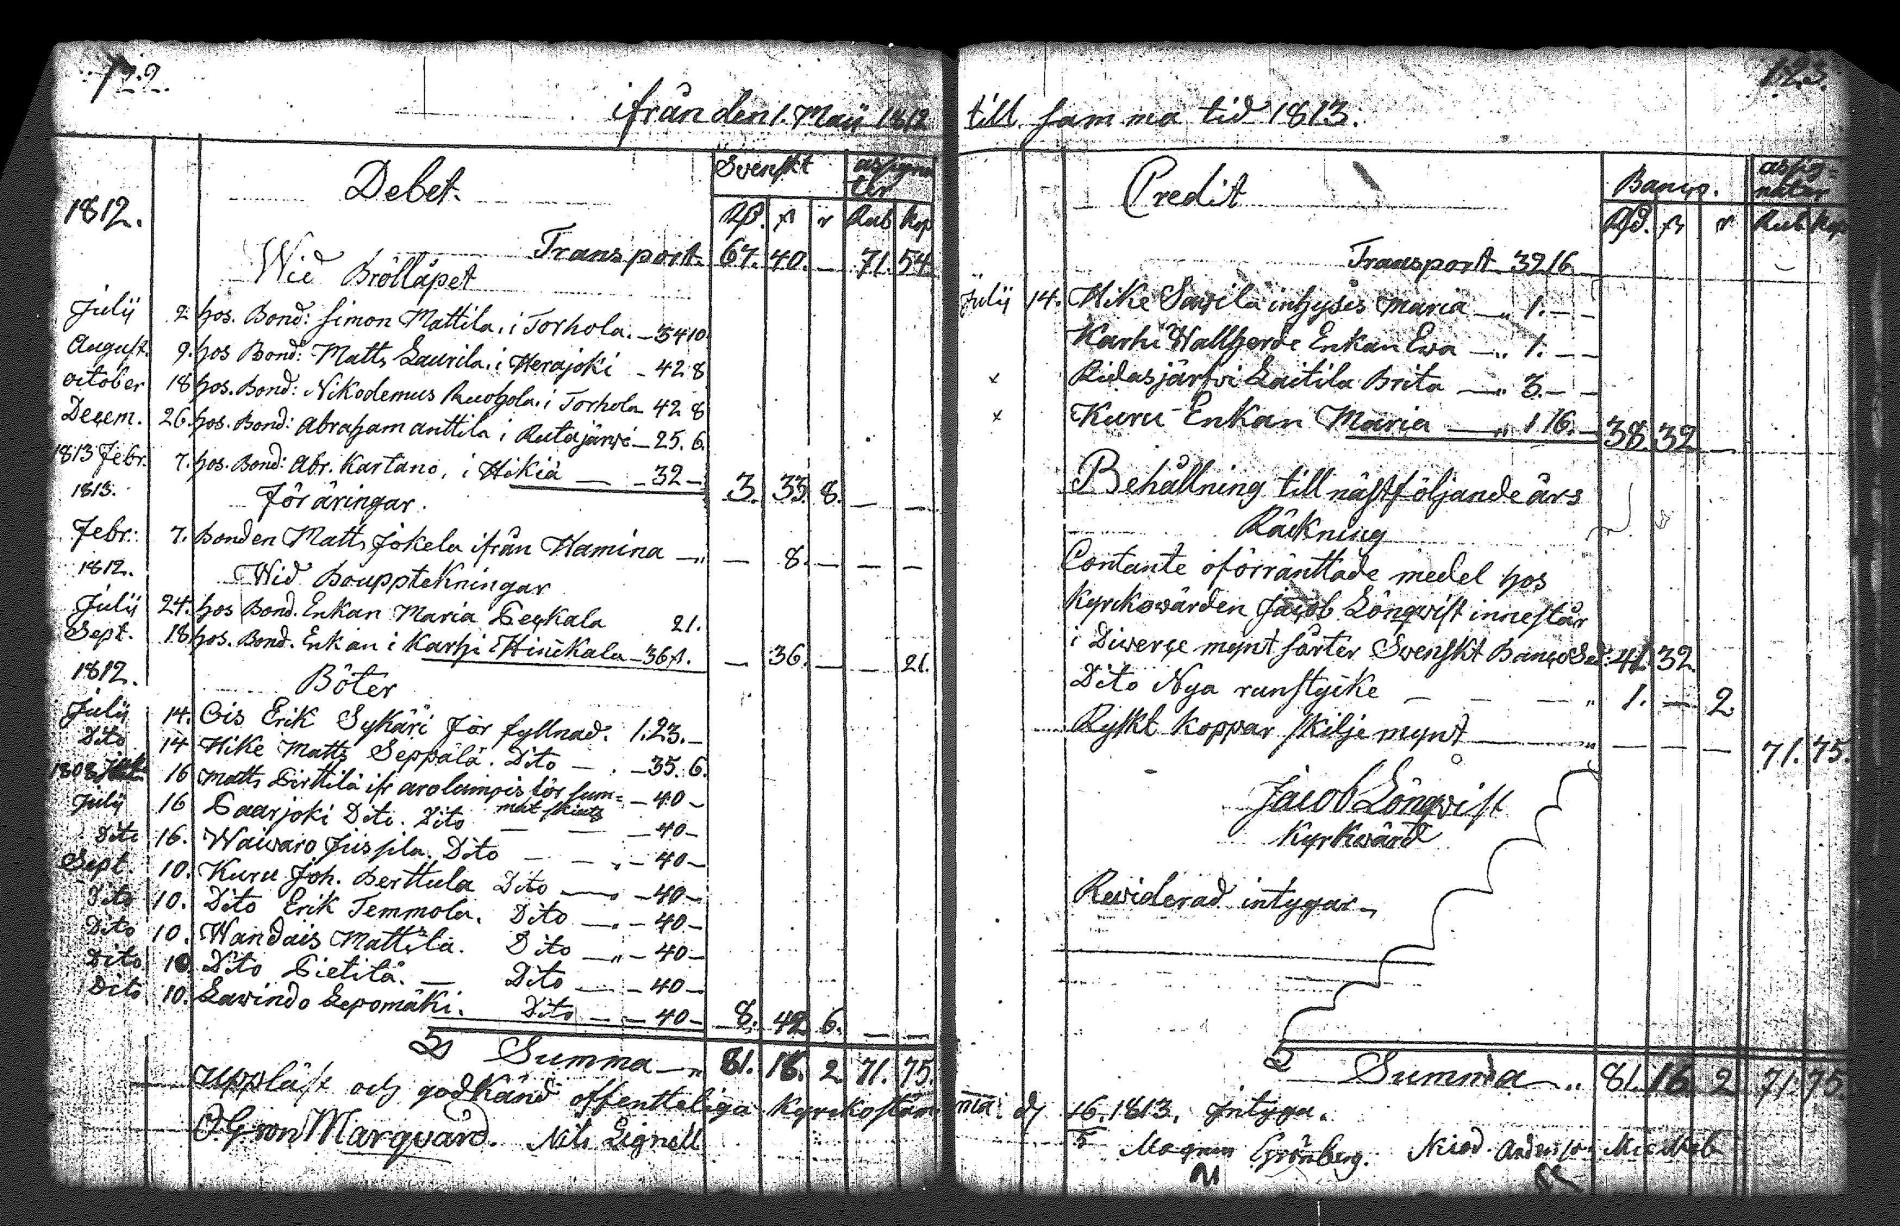 122.
ifrån den 1. Maij 1812
Debet.
Svenskt
1812.
Rd. ß r Rub Kop
Transport. 67. 40. — 71. 54.
Wid Bröllåpet
Julij 2 hos. Bond: Simon Mattila. i Torhola. — 34 10
August. 9. hos Bond: Matts Laurila. i Herajoki — 42 8
october 18 hos. Bond: Nikodemus Ruohola. i Torhola 42 8
Decem. 26. hos. Bond: Abraham anttila i Rutajärwi — 25. 6.
1813 Febr. 7. hos. Bond: Abr. Kartano, i Hikiä — — 32 — 3. 33. 8. — —
1813. För äringar.
Febr: 7. Bonden Matts Jokela ifrån Hamina — — 8. — — —
1812. Wid Bouppteckningar
Julij 24. hos Bond. Enkan Maria Peskala 21.
Sept. 18 hos. Bond. Enkan i Karhi Hinckala — 36 — 36. — — 21.
1812. Böter
Julij 14. Ois Erik Sykäri för fyllnad. 1. 23. —
Dito 14 Hike Matts Seppälä. Dito — — 35. 6.
16 Matts Pirttilä för sum= — 40 —
Julij 16 Paarjoki Dito. Dito — — — 40 —
Dito 16. Waiwaro Jussila. Dito — — — 40 —
Sept. 10. Kuru Joh. Berttula Dito — — 40 —
Dito 10. Dito Erik Temmola. Dito — — 40 —
Dito 10. Wandais Mattila. Dito — — 40 —
Dito 10 Dito Pietilä. — Dito — — 40 —
Dito 10. Lawindo Lepomäki. Dito — — 40 — 8. 42 6. — —
Summa — 81. 16. 2. 71. 75.
Uppläst och godkänd offentteliga Kyrckostäm
Marqvard. Nils Lignell
123.
till samma tid 1813.
Credit
Banco. assig-
nater
Rd. ß r Rub. Kop
Transport 32 16
Julij 14. Hike Sawila inhyses Maria — 1. — —
Karhi Enkan Ewa — 1. — —
x Ridasjärfwi Lautila Brita — 3. — —
x Kuru Enkan Maria — 1 16. — 38. 32 —
Behållning till nästföljande års
Räckning
Contante oförränttade medel hos
Kyrckowärden Jacob Lönqvist innestår
i Diwerse mynt sårter Svenskt Banco 41. 32
Dito Nya runstycke — — — 1. — 2.
Ryskt koppar skilje mynt — — — — 71. 75.
Jacob Lönqvist
Kyrkwärd
Rewiderad intygar
Summa — 81. 16 2 71. 75
ma. d 16/5 1813. Intyga.
Magnus Grönberg.